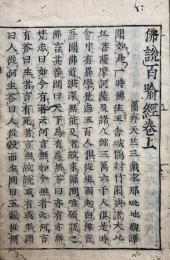 佛說百喻經卷上
蕭齊天竺三藏求那毗地觀譯
聞如是一時佛住王舍城鵲封竹園與諸大比
丘菩薩摩訶薩及諸八部三萬六千人俱是時
會中有異學梵志五百人俱從座而起白佛言
吾聞佛道洪深無能及者故來歸問唯願說之
佛言甚善問曰天下為有為無答曰亦有亦無
梵志曰如今有者云何言無如今無者云何言
有答曰生者言有死者言無故說或有或無問
曰人從何生答曰人從穀而生問曰五穀從何